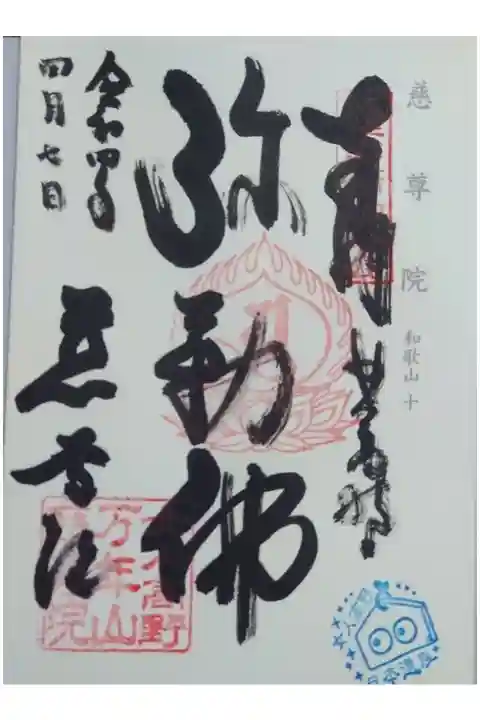 慈尊院
和歌山 十
奉
弥勒佛
令和四年
四月七日
慈尊院
女人高野
万年山
慈尊院
女人高野
日本遺産